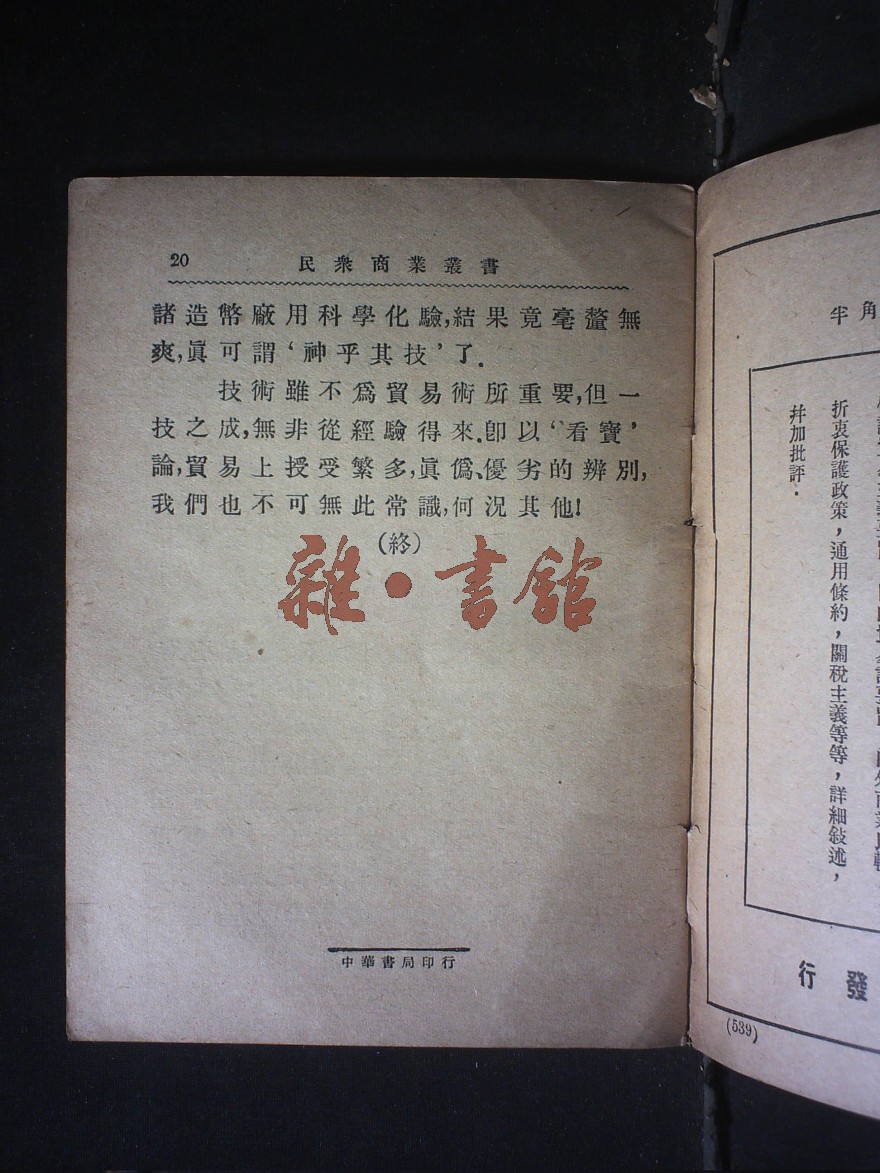 20
民衆商業叢書
諸造幣廠用科學化驗,結果竟毫釐無
爽,眞可謂‘神乎其技’了.
技術雖不爲貿易術所重要,但一
技之成,無非從經驗得來.卽以‘看寶’
論,貿易上授受繁多,眞僞、優劣的辨別,
我們也不可無此常識,何況其他!
(終)
雜·書館
中華書局印行
角
半
折衷保護政策,通用條約,關稅主義等等,詳細敍述,
幷加批評.
發
行
(539)